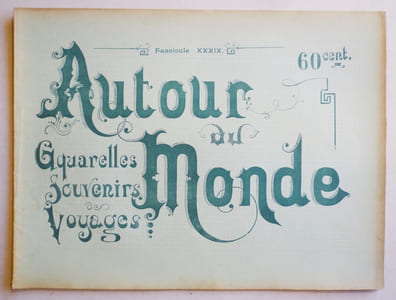 Fascicule XXXIX.
60 cent.
Autour
du
Monde
Aquarelles
Souvenirs
Voyages